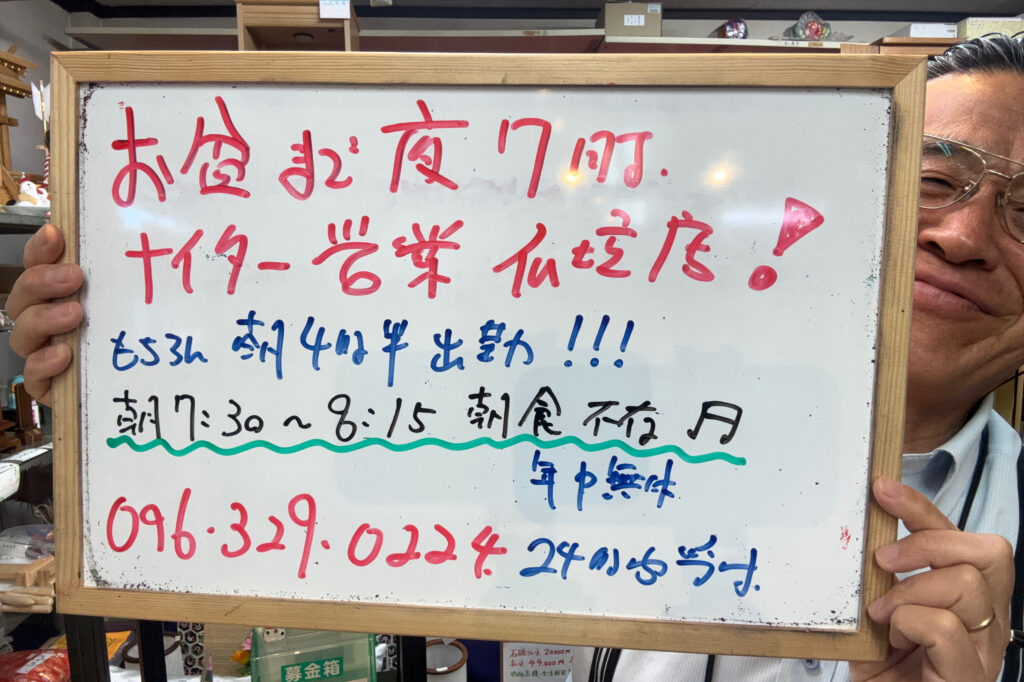 お盆まで夜7時.
ナイター営業仏壇店!
もちろん朝4時半出勤!!!
朝7:30~8:15 朝食不在 月
年中無休
096.329.0224.
24時間受付.
募金箱